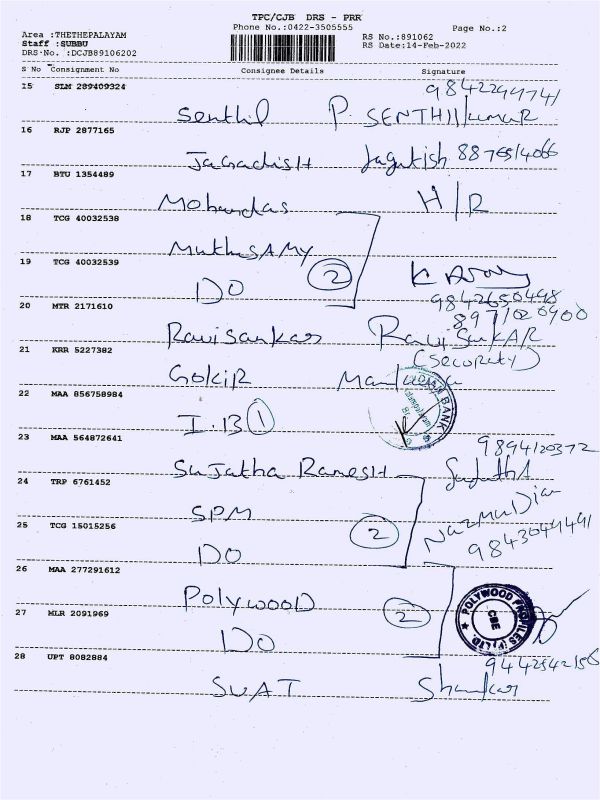 TPC/CJB DRS - PRR
Phone No.:0422-3505555 Page No.:2
Area :THETHEPALAYAM
Staff :SUBBU
DRS-No. :DCJB89106202
RS No.:891062
RS Date:14-Feb-2022
S No Consignment No Consignee Details Signature
15 SLM 289409324
Senthil P. SENTHILkumaR
16 RJP 2877165
JaGadisH Jagatish
17 BTU 1354489
Mohandas H/R
18 TCG 40032538
MuthuSAMY
19 TCG 40032539
DO 2
9842650498
20 MTR 2171610
Ravisankar RavisankAR
(Security)
21 KRR 5227382
GOKIR
22 MAA 856758984
I.B 1 BANK
23 MAA 564872641
9894120372
Sujatha RameSH SujathA
24 TRP 6761452
SPM
25 TCG 15015256
DO 2
Nazmudin
9843049491
26 MAA 277291612
POlywooD 2
27 MLR 2091969
DO
POLYWOOD PROFILES (P) LTD.
CBE
28 UPT 8082884
SWAT Shankar